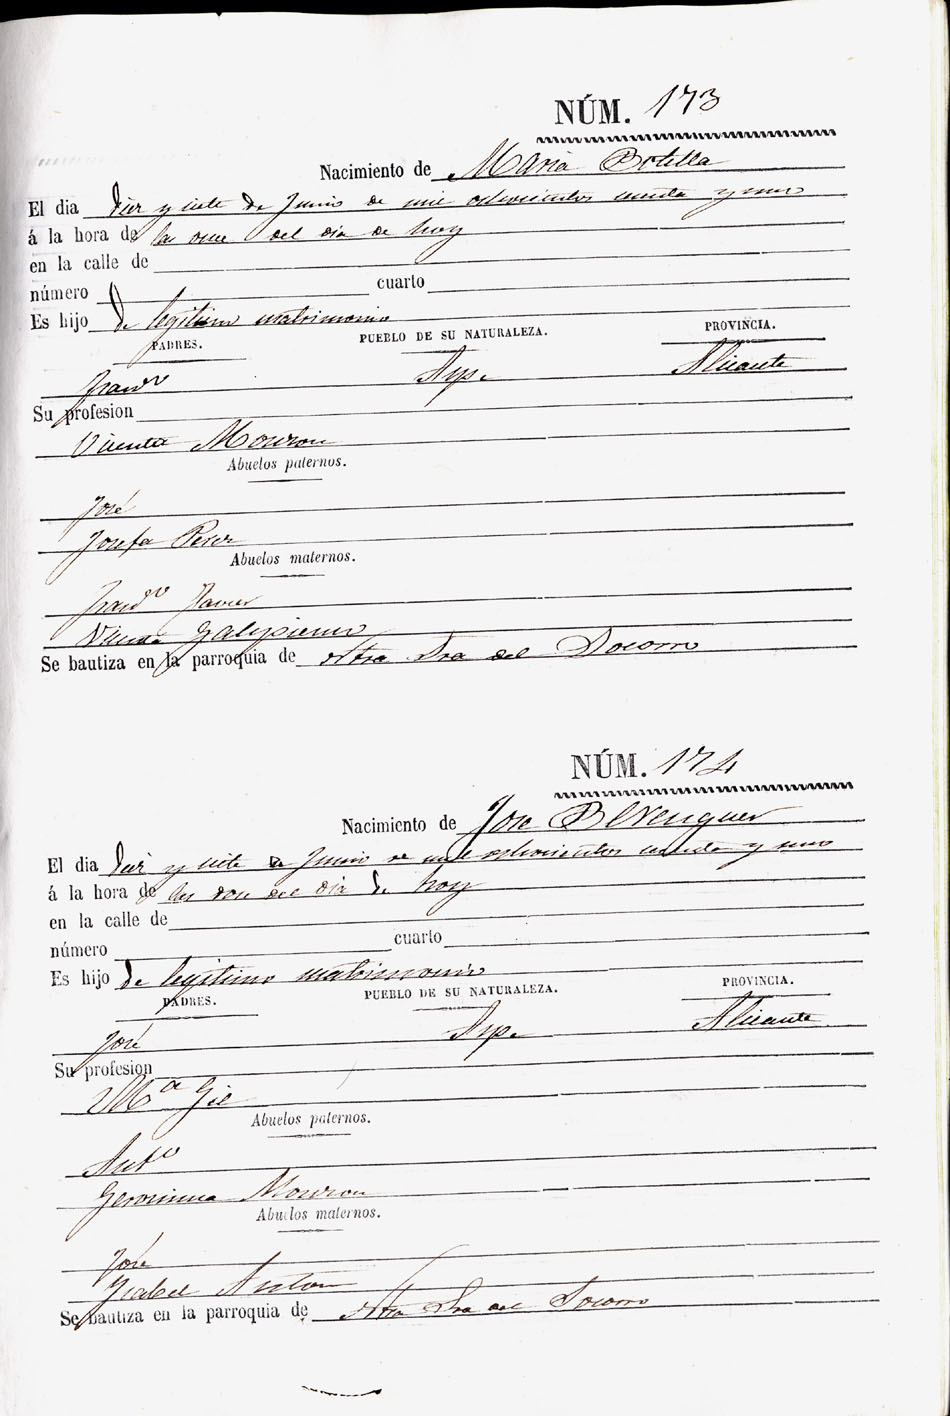 NÚM. 173
Nacimiento de Maria Botella
El dia diez y siete de Junio de mil ochocientos sesenta y uno
á la hora de las once del dia de hoy
en la calle de
número cuarto
Es hijo de legitimo matrimonio
PADRES. PUEBLO DE SU NATURALEZA. PROVINCIA.
Franco Aspe Alicante
Su profesion
Vicenta Mouzon
Abuelos paternos.
José
Josefa Perez
Abuelos maternos.
Franco Javier
Vicenta Galipienso
Se bautiza en la parroquia de Ntra Sra del Socorro
NÚM. 174
Nacimiento de Jose Berenguer
El dia diez y siete de Junio de mil ochocientos sesenta y uno
á la hora de las doce del dia de hoy
en la calle de
número cuarto
Es hijo de legitimo matrimonio
PADRES. PUEBLO DE SU NATURALEZA. PROVINCIA.
José Aspe Alicante
Su profesion
Mª Gil
Abuelos paternos.
Anto
Geronima Mouzon
Abuelos maternos.
José
Ysabel Anton
Se bautiza en la parroquia de Ntra Sra del Socorro